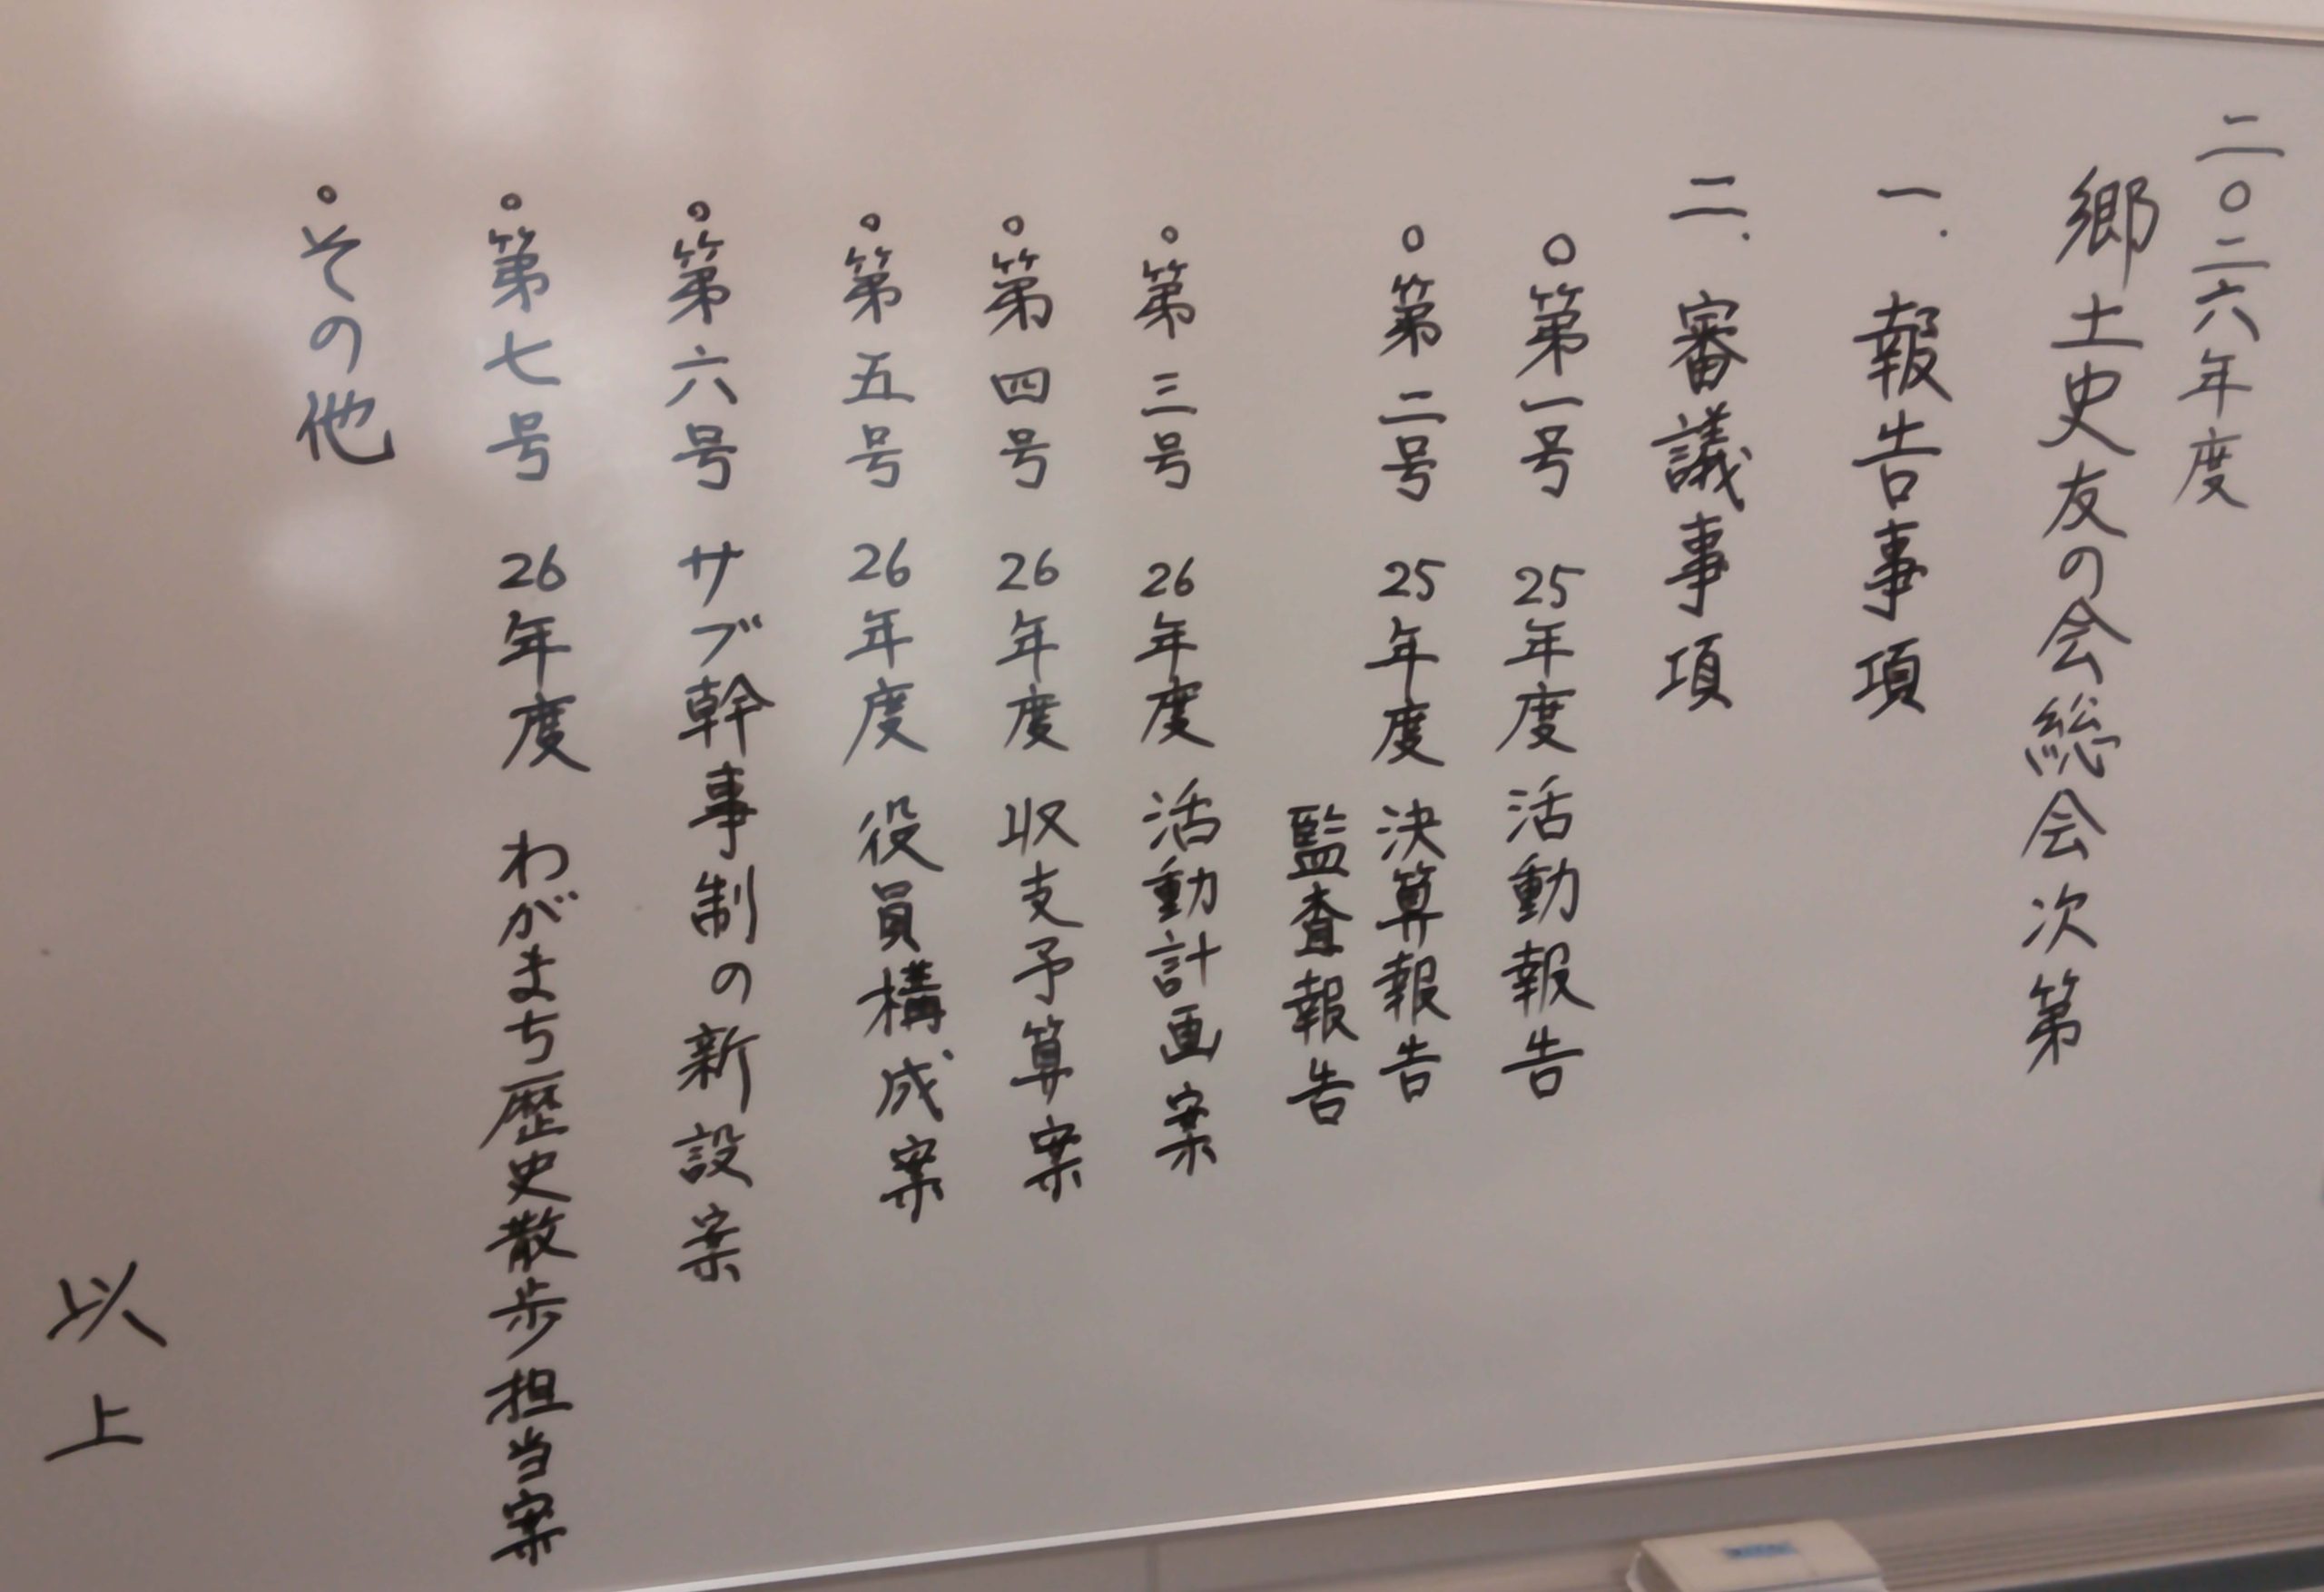 二〇二六年度
郷土史友の会総会次第
一. 報告事項
二. 審議事項
○第一号 25年度活動報告
○第二号 25年度決算報告
監査報告
○第三号 26年度活動計画案
○第四号 26年度収支予算案
○第五号 26年度役員構成案
○第六号 サブ幹事制の新設案
○第七号 26年度 わがまち歴史散歩担当案
○その他
以上